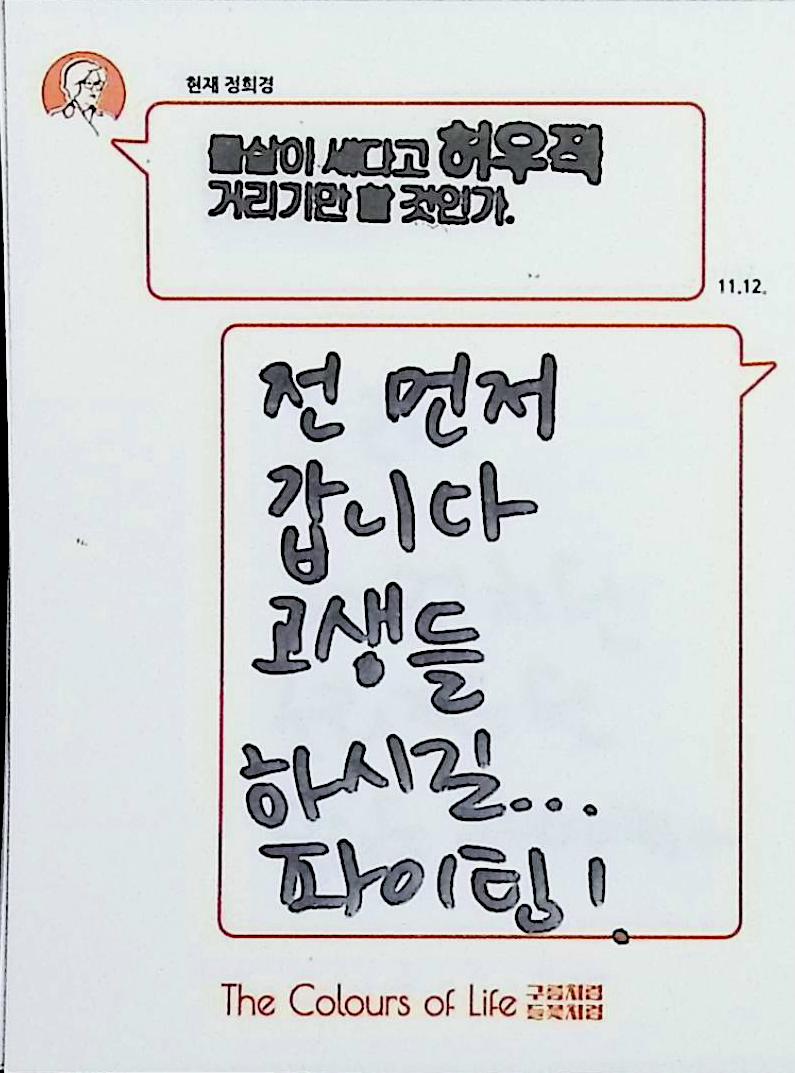 현재 정희경
물살이 세다고 허우적
거리기만 할 것인가.
11.12.
전 먼저
갑니다
고생들
하시길...
파이팅!
The Colours of Life 구름처럼
들꽃처럼